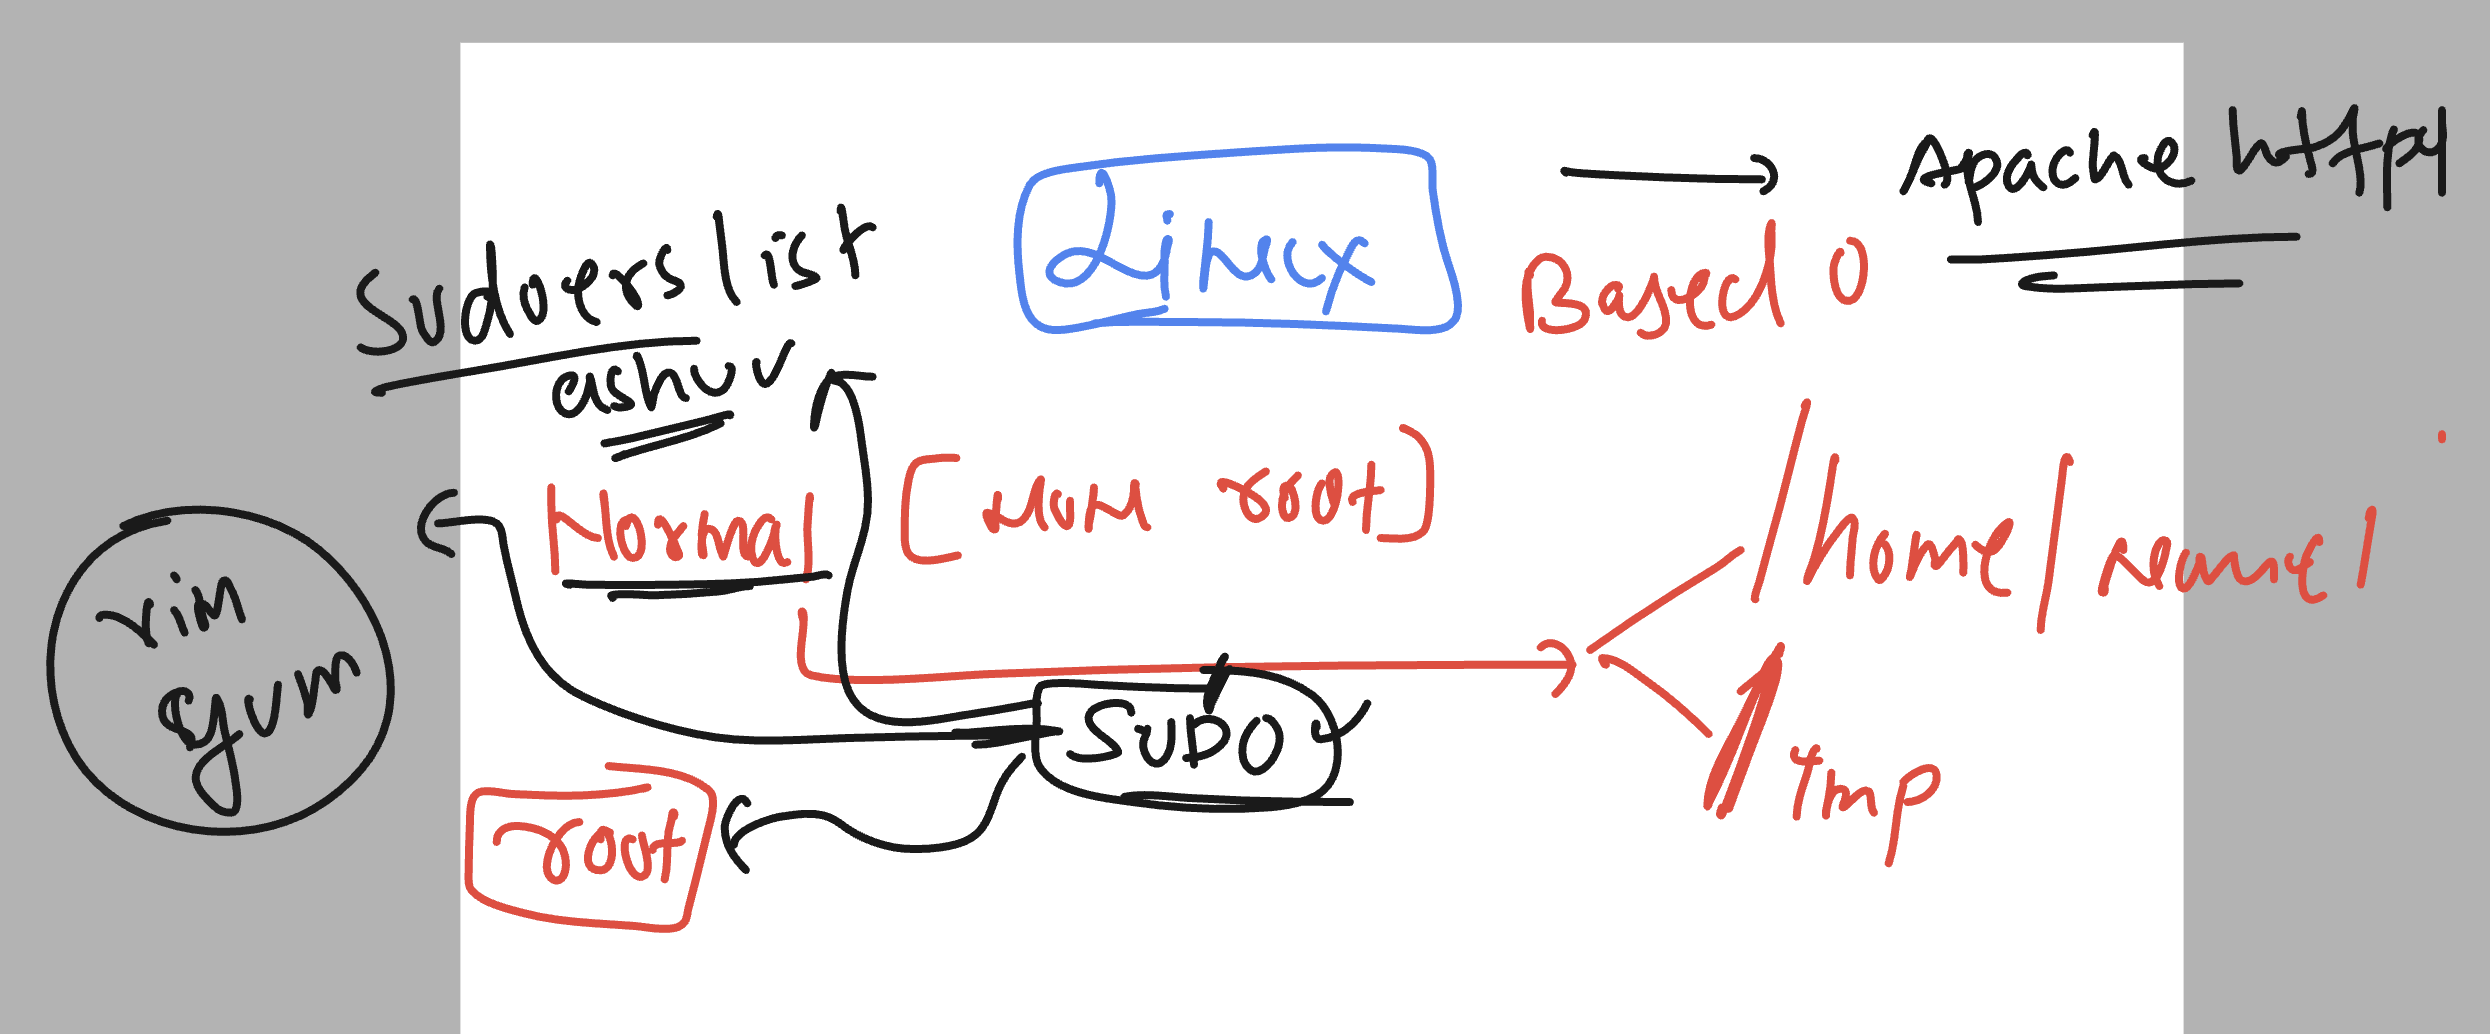 Linux
Apache httpd
Based O
Sudoers list
ashu
Normal [non root]
/home/name/
/tmp
SUDO
vim
yum
root